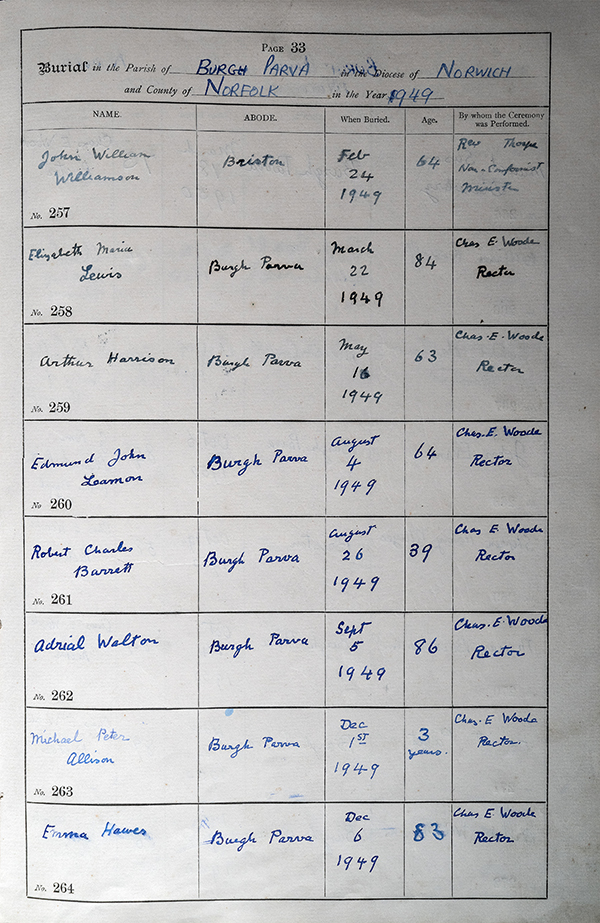 PAGE 33
Burial in the Parish of BURGH PARVA in the Diocese of NORWICH
and County of NORFOLK in the Year 1949
NAME.
ABODE.
When Buried.
Age.
By whom the Ceremony
was Performed.
John William
Williamson
No. 257
Briston
Feb
24
1949
64
Rev Thorpe
Non-Conformist
Minister
Elizabeth Maria
Lewis
No. 258
Burgh Parva
March
22
1949
84
Chas E. Woode
Rector
Arthur Harrison
No. 259
Burgh Parva
May
16
1949
63
Chas. E. Woode
Rector
Edmund John
Leamon
No 260
Burgh Parva
August
4
1949
64
Chas. E. Woode
Rector
Robert Charles
Barrett
No. 261
Burgh Parva
August
26
1949
39
Chas E Woode
Rector
Adrial Walton
No. 262
Burgh Parva
Sept
5
1949
86
Chas. E. Woode
Rector
Michael Peter
Allison
No. 263
Burgh Parva
Dec
1ST
1949
3
years.
Chas. E Woode
Rector.
Emma Hawes
No. 264
Burgh Parva
Dec
6
1949
83
Chas E Woode
Rector